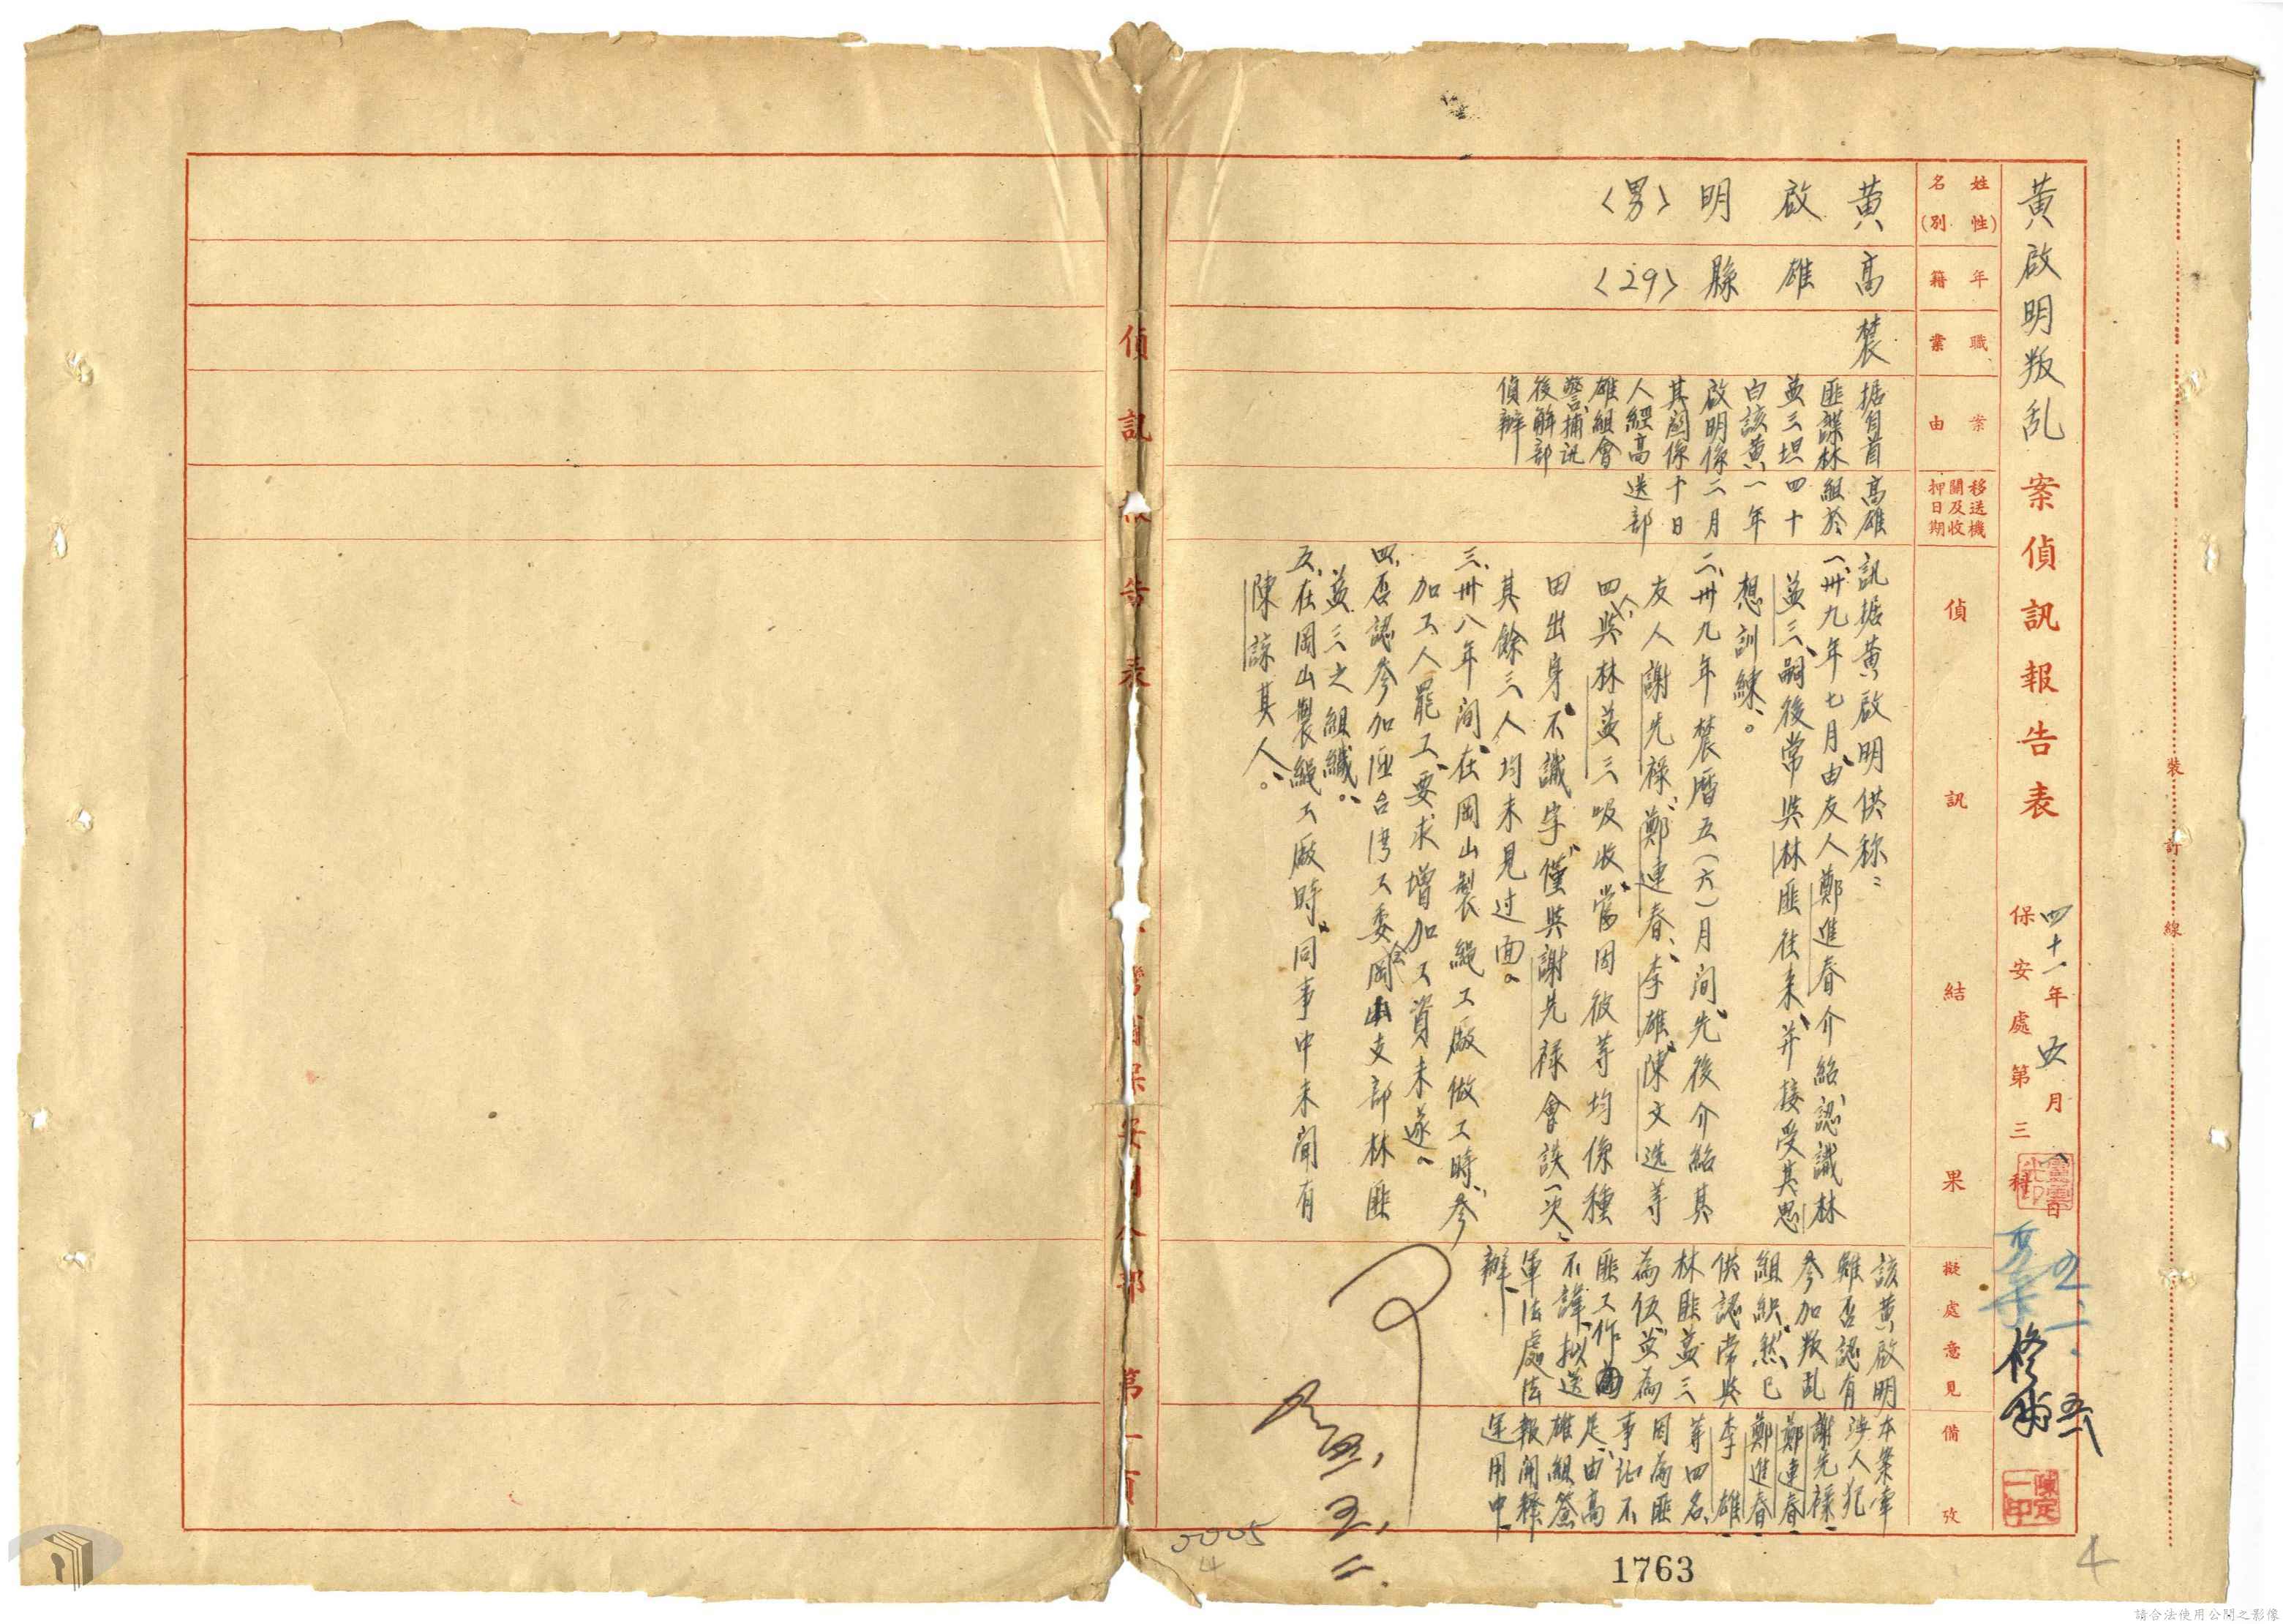 黃啟明叛乱案偵訊報告表
四十一年五月 日
保安處第三科
姓名(性別)
黃啟明〈男〉
年籍
高雄縣〈29〉
職業
農
案由
据自首
匪諜林
益三坦
白該黃
啟明係
其關係
人經高
雄組會
警捕訊
後解部
偵辦
移送機關及收押日期
高雄
組於
四十
一年
二月
十日
送部
偵訊結果
訊据黃啟明供称：
一、卅九年七月、由友人鄭進春介紹、認識林
益三、嗣後常與林匪往来、并接受其思
想訓練。
二、卅九年農曆五(六)月间、先後介紹其
友人謝先祿、鄭連春、李雄、陳文选等
四人、與林益三吸收、當因彼等均係種
田出身、不識字、僅與謝先祿會談一次、
其餘三人均未見过面。
三、卅八年间、在岡山製繩工廠做工時、參
加工人罷工、要求增加工資未遂。
四、否認參加匪台湾工委会岡山支部林匪
益三之組織。
五、在岡山製繩工廠時、同事中未聞有
陳諒其人。
擬處意見
該黃啟明
雖否認有
參加叛乱
組织、然已
供認常與
林匪益三
為伍、並為
匪工作
不諱、拟送
軍法處法
辦。
備攷
本案牽
涉人犯
謝先祿、
鄭連春、
鄭進春、
李雄
等四名、
因為匪
事证不
足、由高
雄組簽
報開釋
运用中、
可
五、二、
陳定一印
偵訊報告表
保安司令部
第一頁
裝訂線
0005
4
1763
4
請合法使用公開之影像